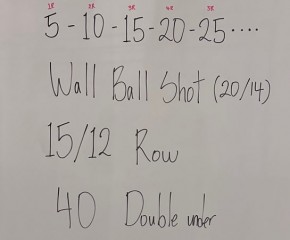 1R 2R 3R 4R 5R
5-10-15-20-25....
Wall Ball Shot (20/14)
15/12 Row
40 Double under